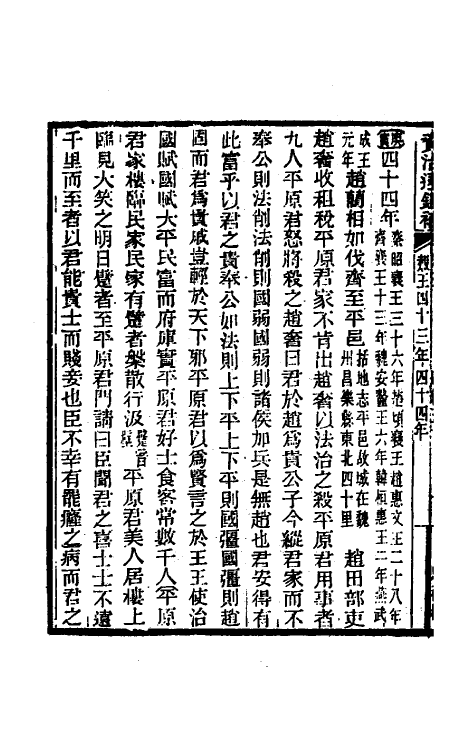 資治通鑑補 赧王四十三年 四十四年
四十四年秦昭襄王三十六年楚頃襄王趙惠文王二十八年
齊襄王十三年魏安釐王六年韓桓惠王二年燕武
成王元年趙藺相如伐齊至平邑括地志平邑故城在魏州昌樂縣東北四十里 趙田部吏
趙奢收租稅平原君家不肯出趙奢以法治之殺平原君用事者
九人平原君怒將殺之趙奢曰君於趙為貴公子今縱君家而不
奉公則法削法削則國弱國弱則諸侯加兵是無趙也君安得有
此富乎以君之貴奉公如法則上下平上下平則國彊國彊則趙
固而君為貴戚豈輕於天下邪平原君以為賢言之於王王使治
國賦國賦大平民富而府庫實平原君好士食客常數千人平原
君家樓臨民家民家有躄者槃散行汲 平原君美人居樓上
臨見大笑之明日躄者至平原君門請曰臣聞君之喜士士不遠
千里而至者以君能貴士而賤妾也臣不幸有罷癃之病而君之